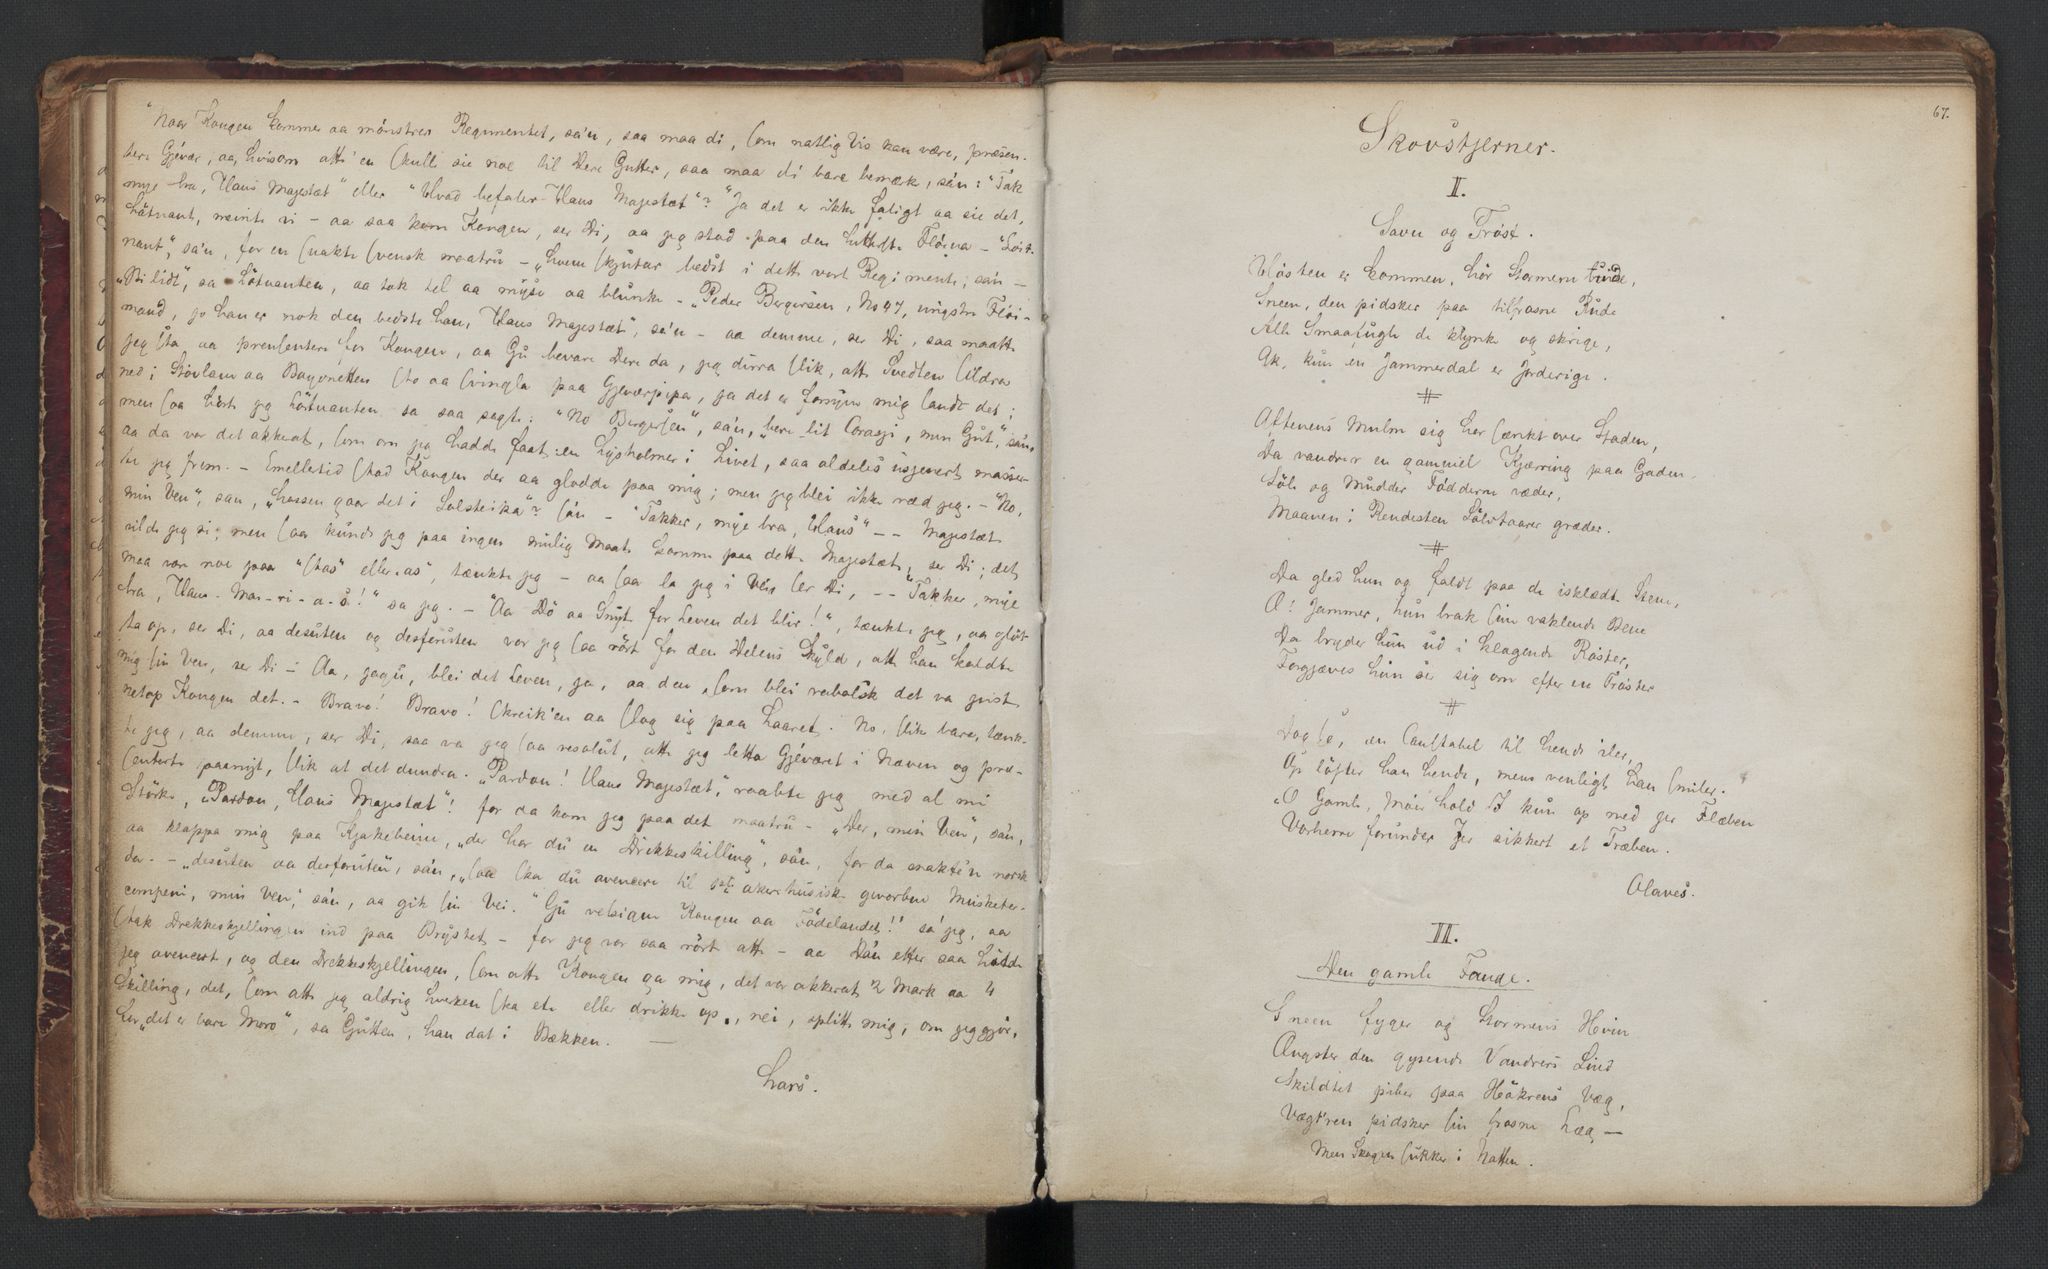 "Naar Kongen kommer aa mönstrer Regimentet, sa'n, saa maa di, som natlig Vis kan være, præsen-
tere Gjévær, aa, hvisom att' en skulle sie noe til Dere Gutter, saa maa di bare bemærke, sán: "Tak
mye bra, Hans Majestæt" eller "Hvad befaler Hans Majestæt"? "Ja det er ikke faligt aa sie det,
Lötnant, meinte vi – aa saa kom Kongen, ser Di, aa jeg stod paa den lutterste Flöina – "Löit-
nant", sa'n, for en snakte svensk maatru – „hvem skjutar bedst i dette vort Regimente, sán –
„Bi lidt", sa Lötnanten, aa tok til aa myse aa blunke – „Peder Bergersen, No 47, yngste Flöi-
mand, jo han er nok den bedste han, Hans Majestæt", sa'n – aa demme, ser Di, saa maatte
jeg sta aa prensentere for Kongen, aa Gu bevare Dere da, jeg dirra slik, att Svedten sildra
ned i Stövlam aa Bayonetten sto aa svingla paa Gjeværpipa, ja det er forsyne mig sandt det;
men saa hörte jeg Löitnanten sa saa sagte: "No Bergersen", sán, „bere lit Corasji, min Gut", sán,
aa da var det akkerat, som om jeg hadde faat en Lysholmer i Livet, saa aldeles usjenert masser-
te jeg frem. – Emelletid stod Kongen der aa glodde paa mig; men jeg blei ikke ræd jeg. – "No,
min Ven", san, „hossen gaar det i Solsteika"? sán – "Takker, mye bra, Hans" – – Majestæt
vilde jeg si; men saa kunde jeg paa ingen mulig Maate komme paa dette Majestæt, ser Di; det
maa vær noe paa "stas" eller "as", tænkte jeg – aa saa la jeg i Vei ser Di, – – "Takker, mye
bra, Hans Mar-ri-a-s!" sa jeg. – "Aa Dö aa Snyt for Leven det blir!", tænkte jeg, aa glöt-
ta op, ser Di, aa desuten og desforuten var jeg saa rört for den Delens Skyld, att han kaldte
mig sin Ven, ser Di – Aa, jagu, blei det Leven, ja, aa den, som blei rabalsk det va just
netop Kongen det. – Bravo! Bravo! skreik'en aa slog sig paa Laaret. No, slik bare, tænk-
te jeg, aa demme, ser Di, saa va jeg saa resolut, att jeg letta Gjéværet i Næven og præ-
senterte paanyt, slik at det dundra. "Pardon! Hans Majestæt", raabte jeg med al mi
Störke, „Pardon, Hans Majestæt"! for da kom jeg paa det maatru – „Der, min Ven", sán,
aa klappa mig paa Kjakebeine, „der har du en Drikkeskilling", sán, for da snakte'n norsk
da. – „desuten aa desforuten, sán, „saa ska du avencere til 1ste akershusiske gevorbne Musketer-
compeni, min Ven", sán, aa gik sin Vei. "Gu velsigne Kongen aa Födelandet!" sa jeg, aa
stak Drekkeskjellingen ind paa Brystet – for jeg var saa rört att – aa Dán etter saa hadde
jeg avencert, og den Drekkeskjellingen, som atte Kongen ga mig, det var akkerat 2 Mark aa 4
Skilling, det, som att jeg aldrig hverken ska ete eller drikke op, nei, splitte mig, om jeg gjör,
for „det er bare Moro", sa Gutten, han dat i Bækken. —
Lars.
67.
Skovstjerner.
II.
Savn og Tröst.
Hösten er kommen, hör Stormen tude,
Sneen, den pidsker paa tilfrosne Rude
Alle Smaafugle de klynke og skrige,
Ak, kun en Jammerdal er Jorderige.
#
Aftenens Mulm sig har sænkt over Staden,
Da vandrer en gammel Kjærring paa Gaden
Söle og Mudder Födderne væder,
Maanen i Rendesten Sölvtaarer græder.
#
Da gled hun og faldt paa de isklædte Stene,
O! Jammer, hun brak sine vaklende Bene
Da bryder hun ud i klagende Röster,
Forgjæves hun ser sig om efter en Tröster
#
Dog se, en Constabel til hende iler,
Op löfter han hende, mens venligt han smiler.
„O Gamle, Moer hold I kun op med jer Flæben
Vorherre forunder Jer sikkert et Træben.
Olaves.
III.
Den gamle Fange.
Sneen fyger og Stormens Hvin
Ængster den gysende Vandrers Sind
Skildtet piber paa Hökrens Væg,
Vægt'ren pidsker sin frosne Læg —
Men Skogen sukker i Natten.